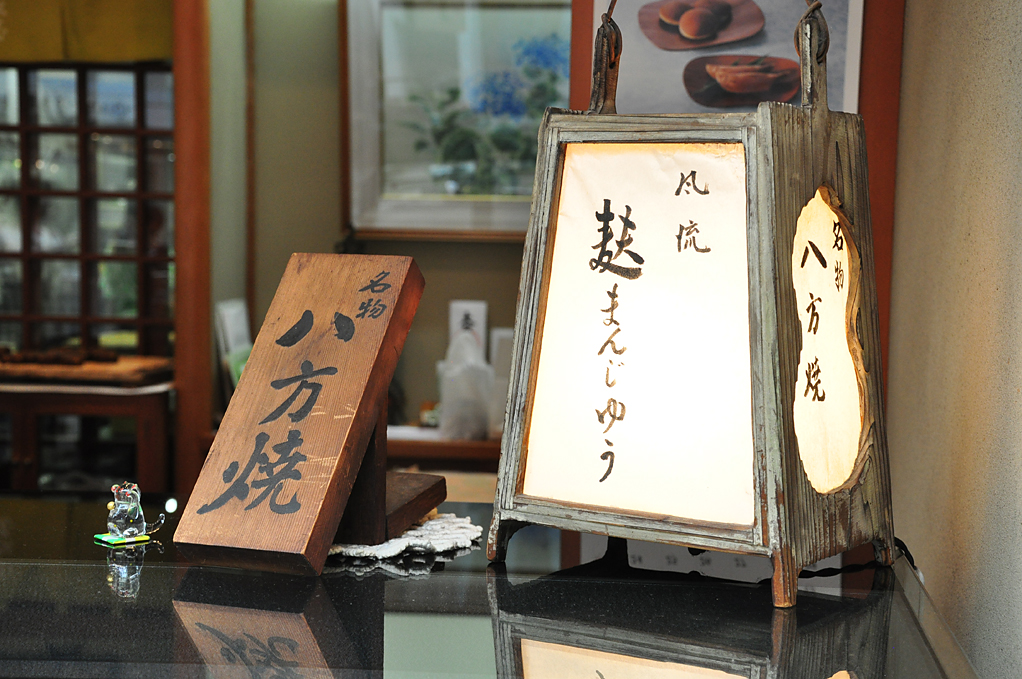 名物
八方焼
風流
麩まんじゅう
名物
八方焼